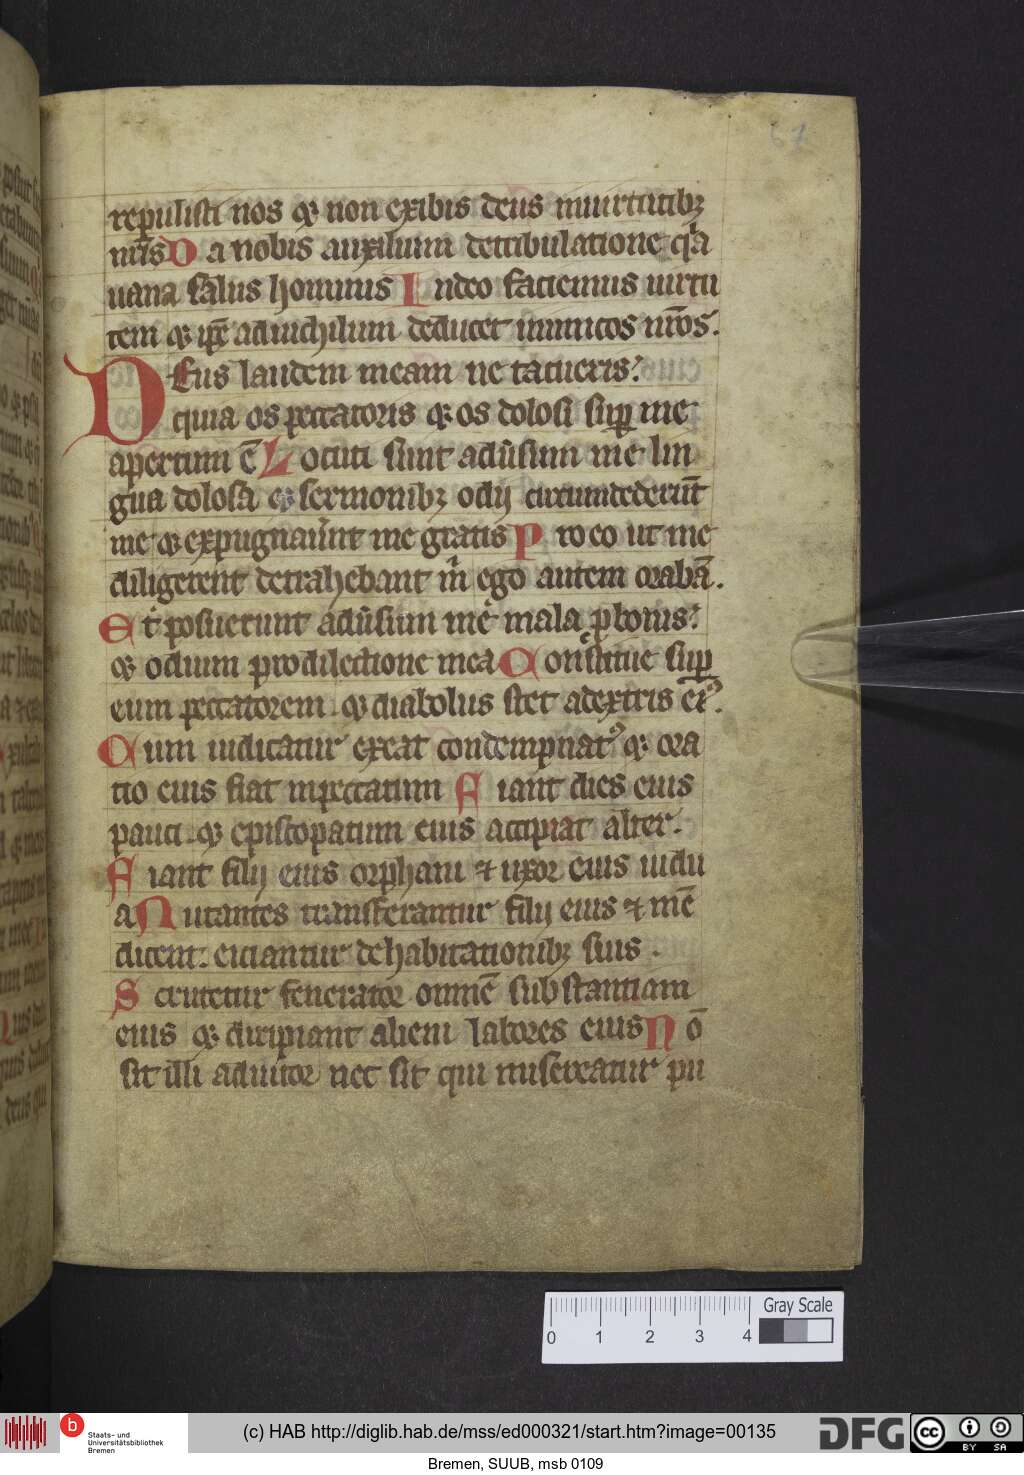 67
repulisti nos ⁊ non exibis deus in uirtutib;
nr̄is D a nobis auxilium de tribulatione q̇a
uana salus hominis I n deo faciemus uirtu
tem ⁊ ip̄e ad nichilum deducet inimicos nr̄os.
D Eus laudem meam ne tacueris:
quia os peccatoris ⁊ os dolosi sup̄ me
apertum ē L ocuti sunt adūsum me lin
gua dolosa ⁊ sermonib; odij circumdederūt
me ⁊ expugnaūnt me gratis P ro eo ut me
diligerent detrahebant m̄ ego autem orabā.
E t posuerunt adūsum me mala ꝓ bonis:
⁊ odium pro dilectione mea C onstitue sup̄
eum peccatorem ⁊ diabolus stet a dextris ei⁹.
C um iudicatur exeat condempnat⁹ ⁊ ora
tio eius fiat in peccatum F iant dies eius
pauci ⁊ episcopatum eius accipiat alter.
F iant filij eius orphani ⁊ uxor eius uidu
a N utantes transferantur filij eius ⁊ mē
dicent. eiciantur de habitationib; suis.
S crutetur fenerator omnē substantiam
eius ⁊ diripiant alieni labores eius N ō
sit illi adiutor nec sit qui misereatur pu
Gray Scale
0 1 2 3 4
Staats- und
Universitätsbibliothek
Bremen
(c) HAB http://diglib.hab.de/mss/ed000321/start.htm?image=00135
DFG
cc BY SA
Bremen, SUUB, msb 0109